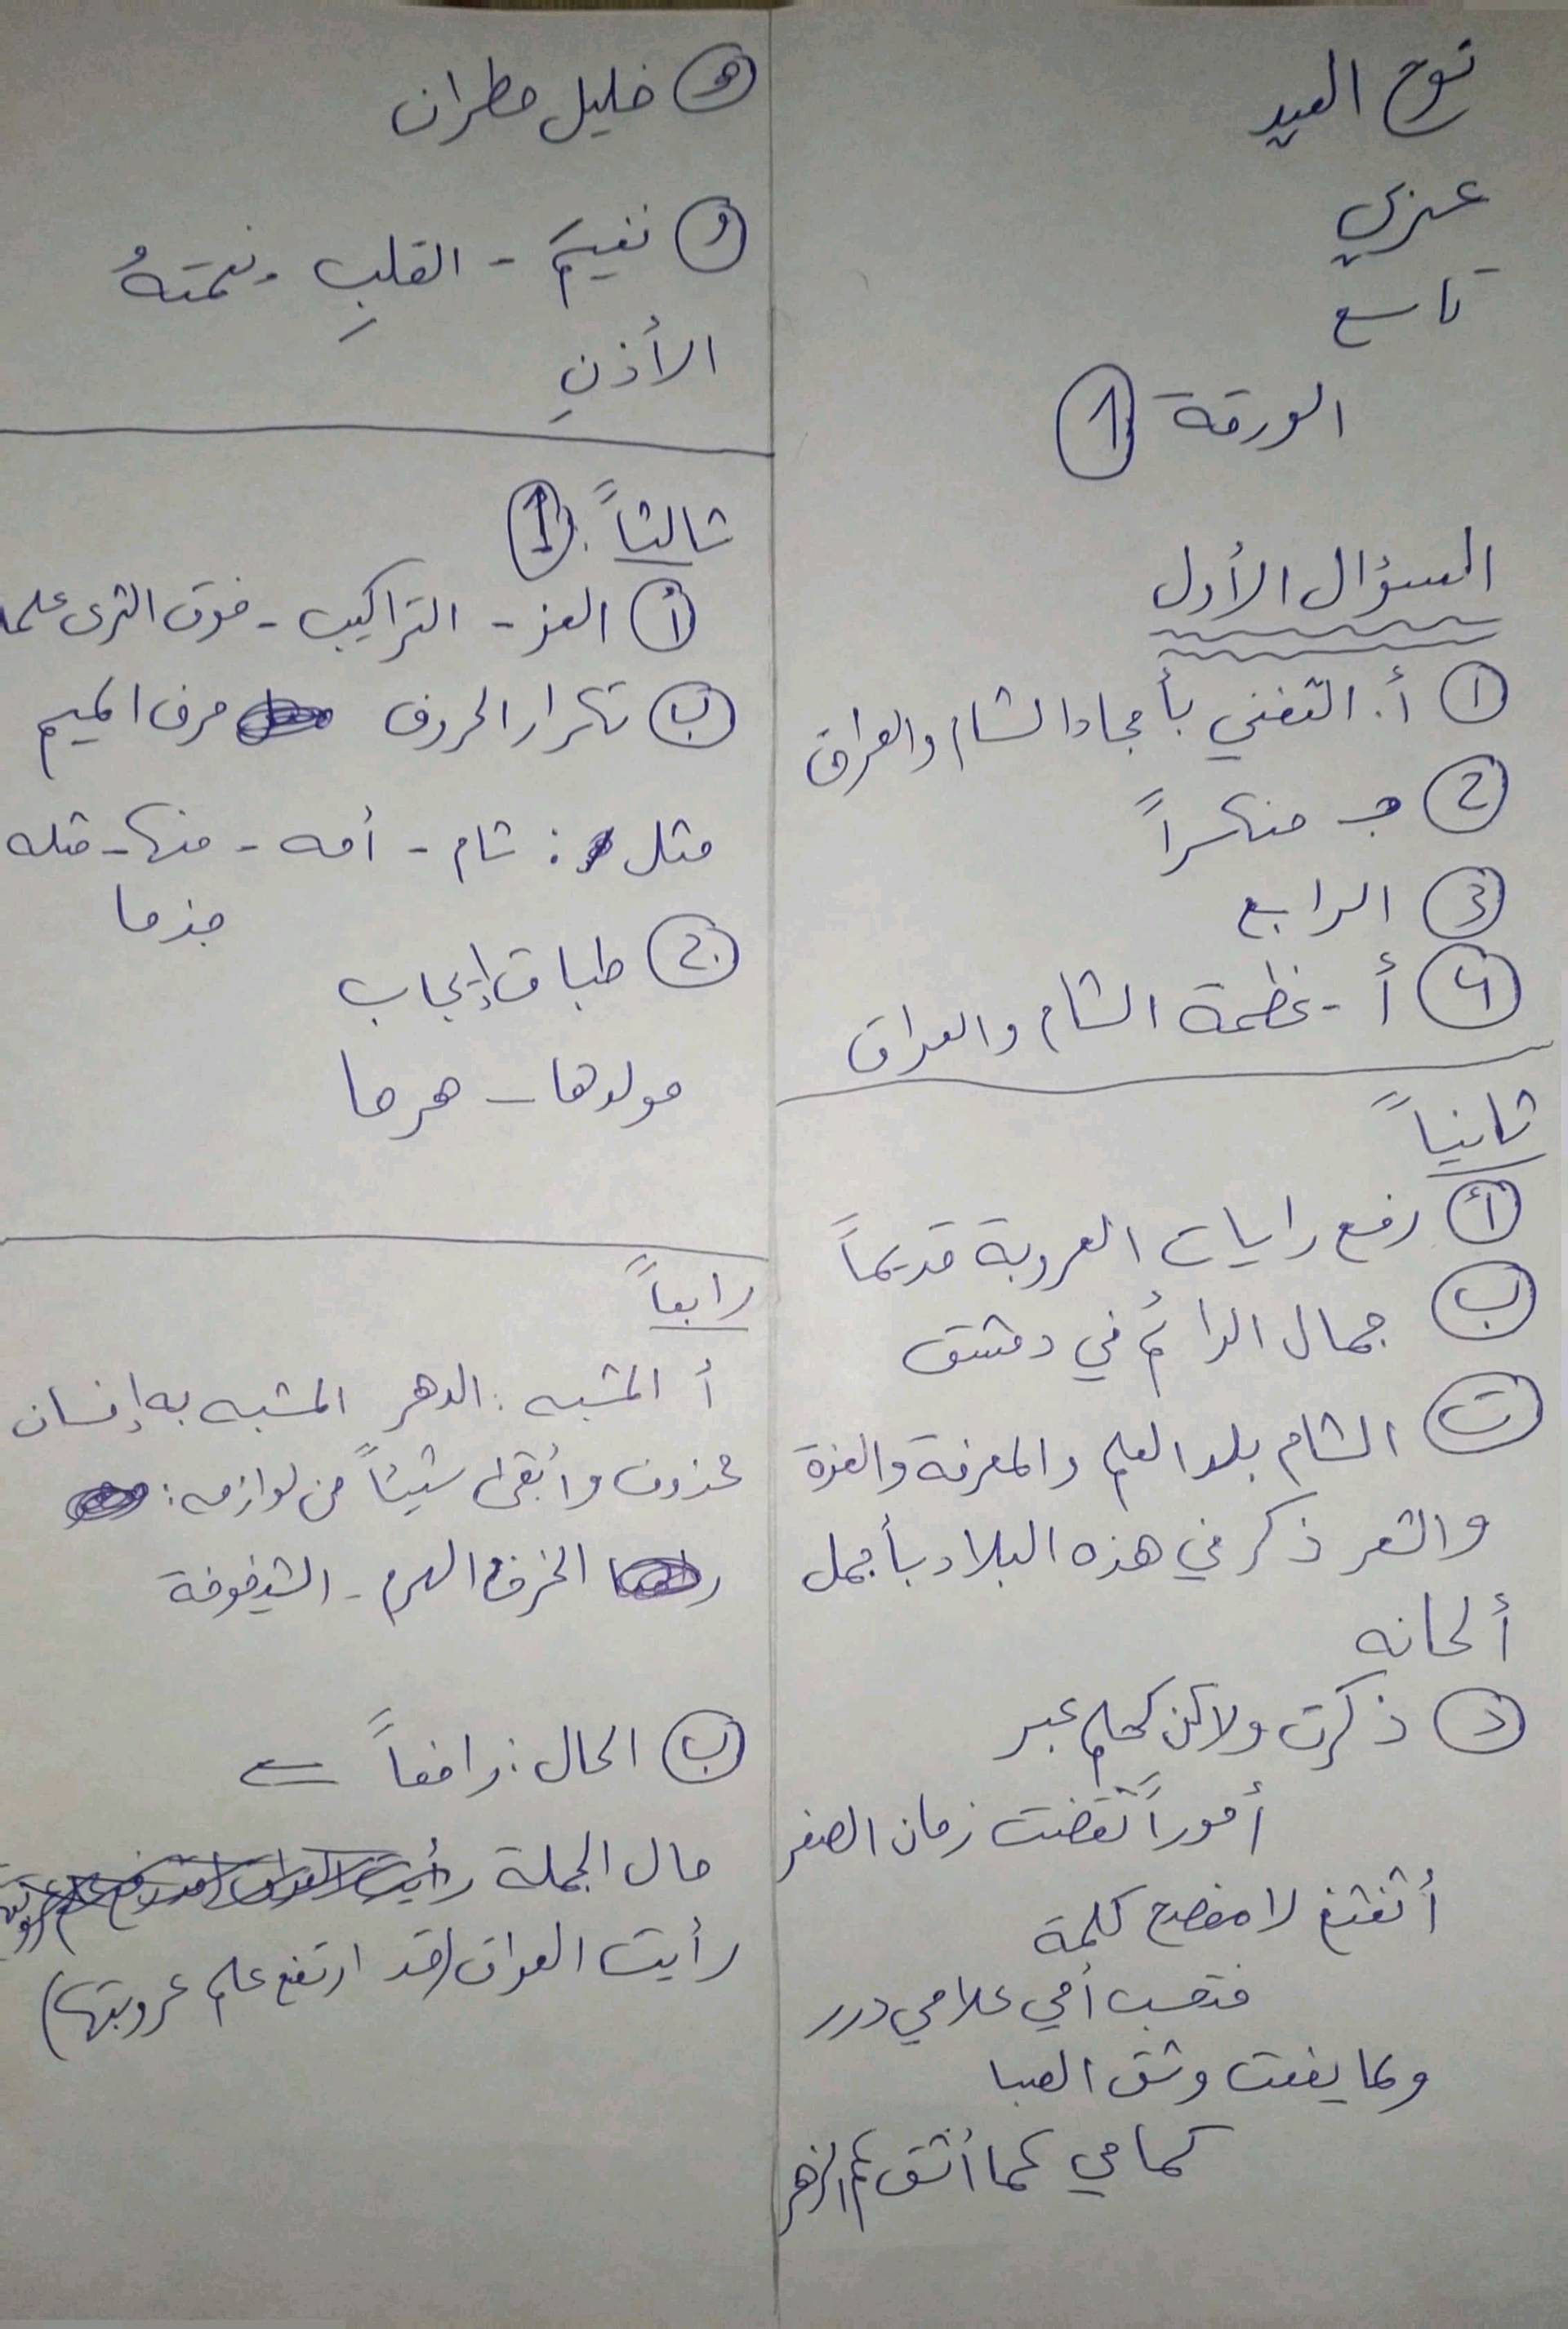 نوح العيد
عربي
تاسع
الورقة 1
السؤال الأول
1 أ. التغني بأمجاد الشام والعراق
2 جـ منكسراً
3 الرابع
4 أ - عظمة الشام والعراق
ثانياً
أ رفع رايات العروبة قديماً
ب جمال الرائم في دمشق
ت الشام بلد العلم والمعرفة والعزة
والشعر ذكر في هذه البلاد بأجمل
ألحانه
د ذكرت ولاكن كحلم عبر
أموراً تقضت زمان الصغر
أتغتغ لا مفصح كلمة
فتحسب أمي كلامي درر
ولما يفعت وشق الصبا
كمامي كما أنشق كم الزهر
هـ خليل مطران
و نغيم - القلبِ ونعمتهُ
الأذنِ
ثالثاً: 1
أ العز - التراكيب - فوق الثرى علما
ب تكرار الحروف حرف الميم
مثل : شام - أمه - منها - مثله
جذما
2 طباق إيجاب
مولدها - هرما
رابعاً
أ المشبه: الدهر المشبه به إنسان
محذوف وأبقى شيئاً من لوازمه:
الخرف الهرم - الشيخوخة
ب الحال: رافعاً
حال الجملة
رأيت العراق (قد ارتفع علم عروبتها)